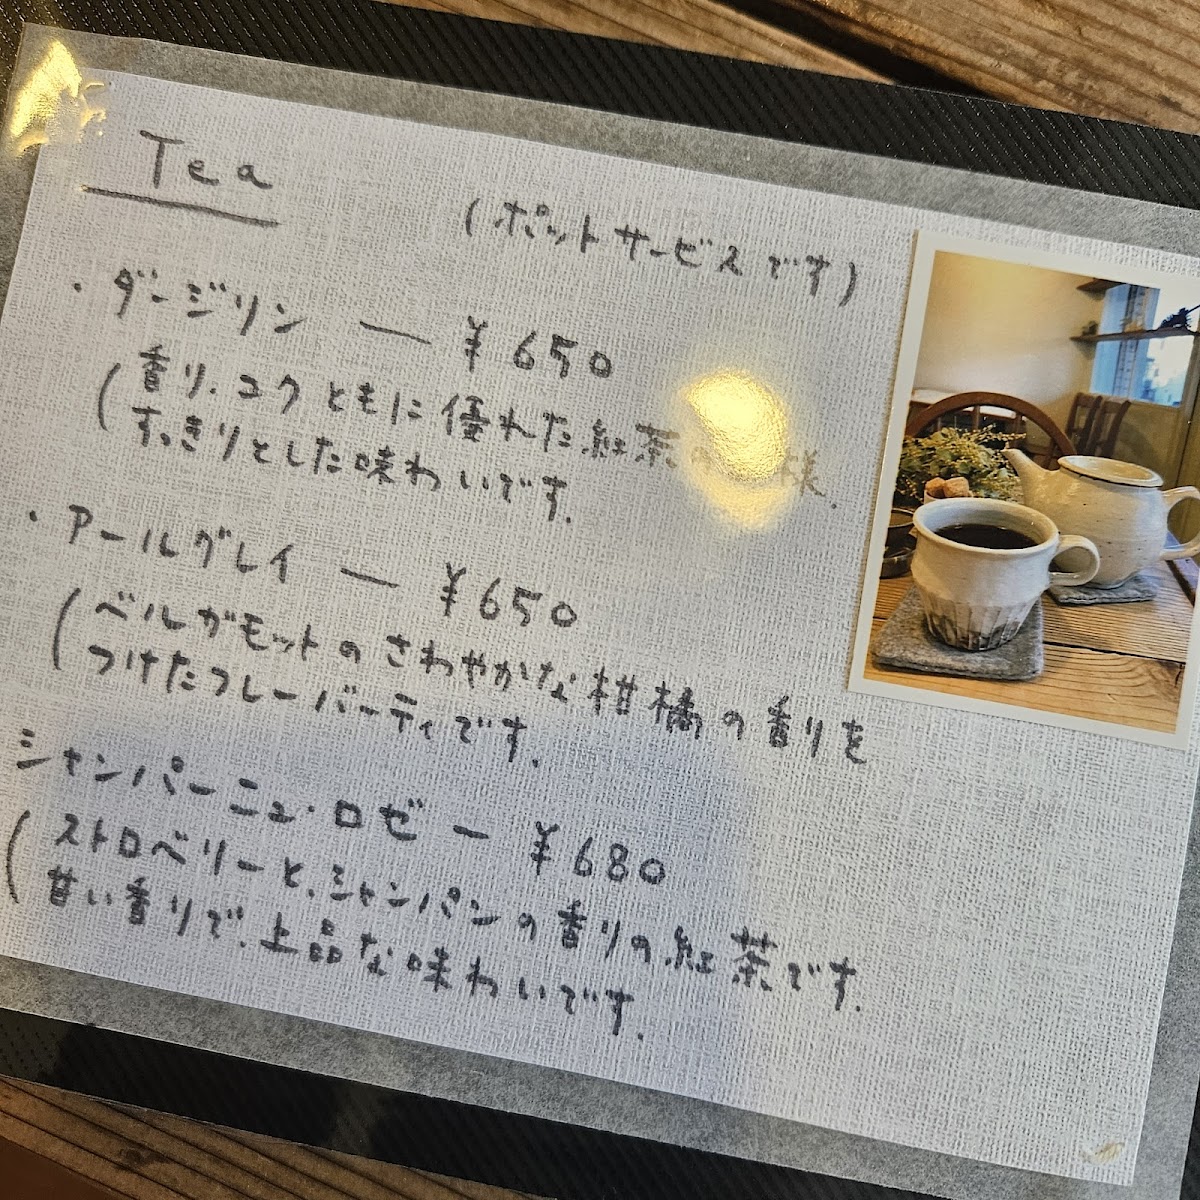 Tea
(ポットサービスです)
・ダージリン — ¥650
(香り、コクともに優れた紅茶の 様.
すっきりとした味わいです.
・アールグレイ — ¥650
(ベルガモットのさわやかな柑橘の香りを
つけたフレーバーティです.
シャンパーニュ・ロゼ — ¥680
(ストロベリーと、シャンパンの香りの紅茶です.
甘い香りで、上品な味わいです.